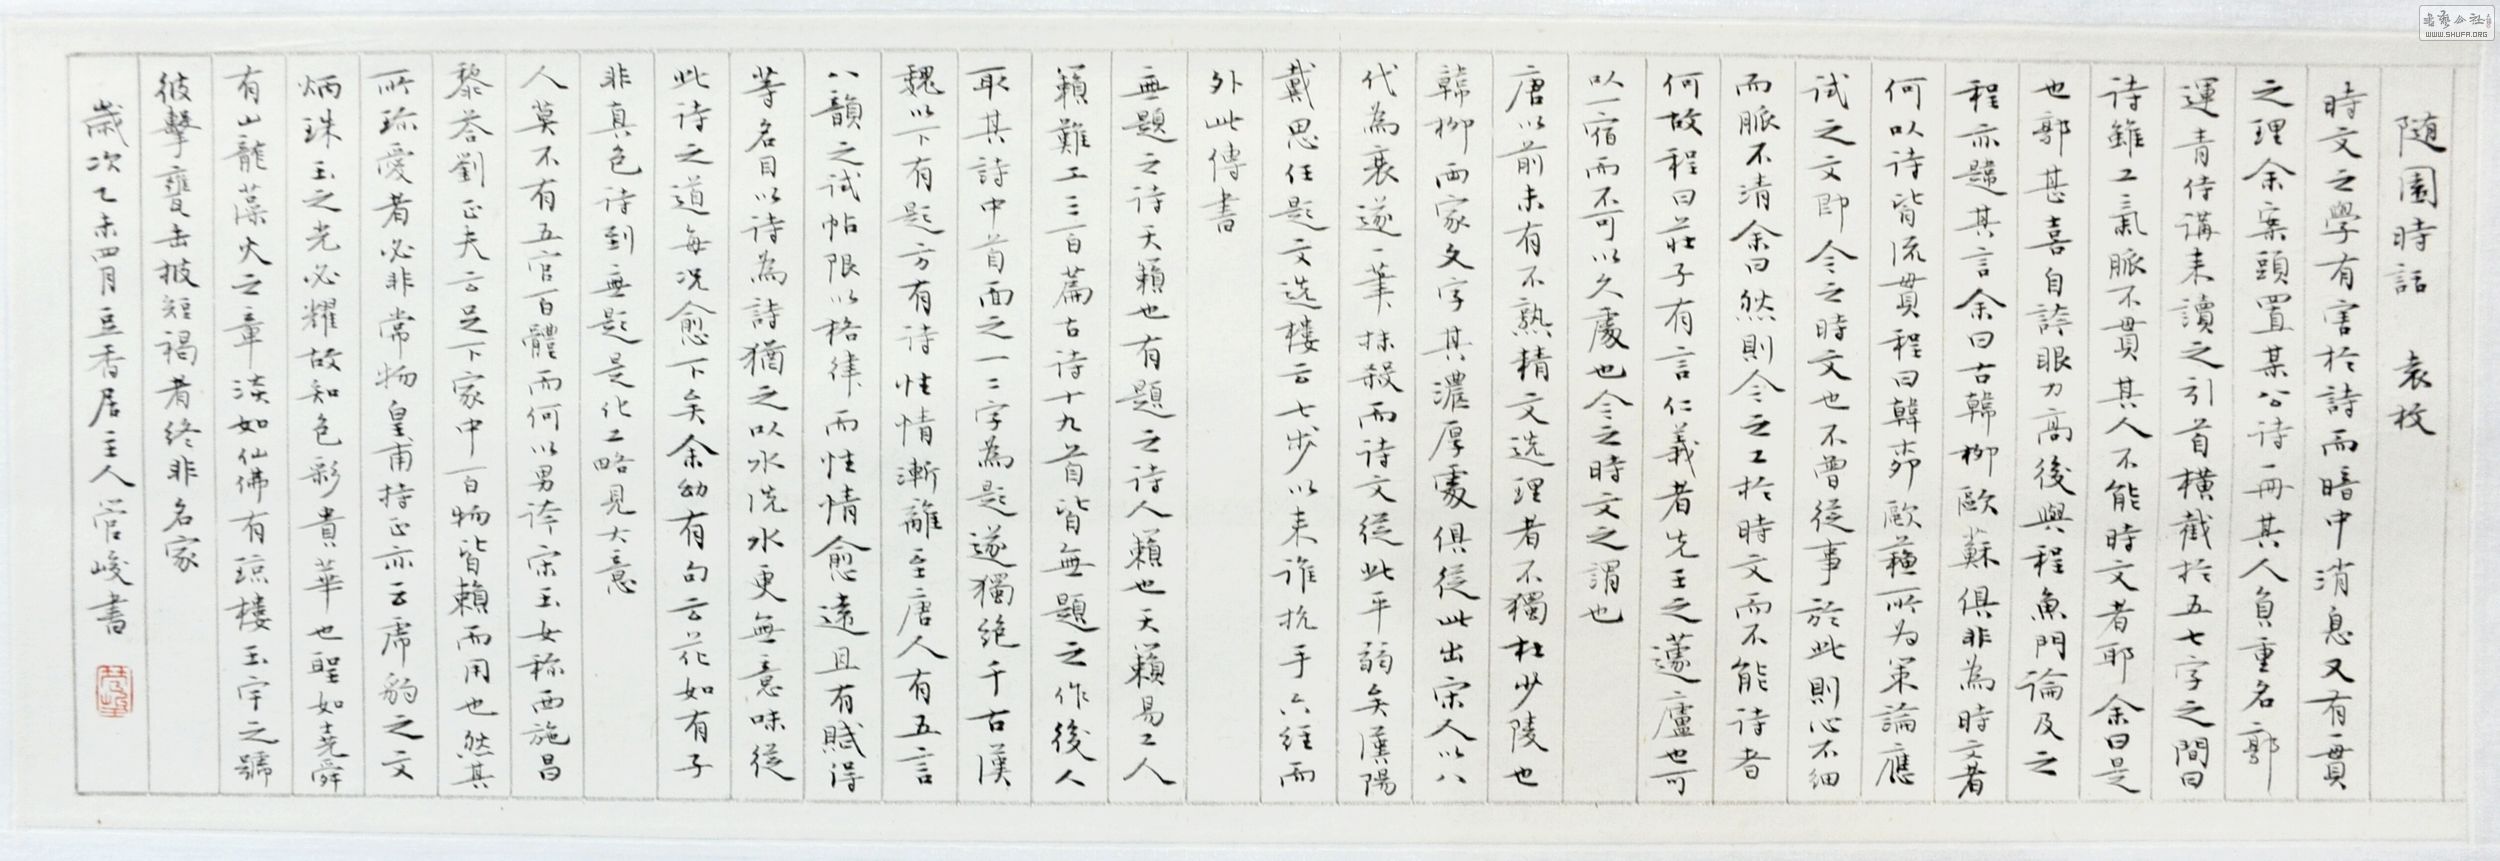 随園時話 袁枚
時文之學有害於詩而暗中消息又有一貫
之理余案頭置某公诗冊其人負重名郭
運青侍講来讀之引首橫截於五七字之間曰
诗雖工氣脈不貫其人不能時文者耶余曰是
也郭甚喜自誇眼力高後與程魚門論及之
程亦韙其言余曰古韓柳歐蘇俱非為時文者
何以诗皆流貫程曰韓柳歐蘇所为策論應
试之文即今之時文也不曾從事於此則心不细
而脈不清余曰然則今之工於時文而不能诗者
何故程曰莊子有言仁義者先王之蘧廬也可
以一宿而不可以久處也今之時文之謂也
唐以前未有不熟精文选理者不獨杜少陵也
韓柳两家文字其濃厚處俱從此出宋人以八
代为衰遂一筆抹殺而诗文從此平弱矣漢陽
戴思任题文选楼云七步以来谁抗手六经而
外此傳書
無題之诗天籟也有題之诗人籟也天籟易工人
籟難工三百篇古诗十九首皆無題之作後人
取其詩中首面之一二字為题遂獨絶千古漢
魏以下有题方有诗性情漸離至唐人有五言
八韻之试帖限以格律而性情愈遠且有賦得
等名目以诗為詩猶之以水洗水更無意味從
此诗之道每况愈下矣余幼有句云花如有子
非真色诗到無题是化工略見大意
人莫不有五官百體而何以男誇宋玉女称西施昌
黎荅劉正夫云足下家中百物皆賴而用也然其
所珎愛者必非常物皇甫持正亦云虎豹之文
炳珠玉之光必耀故知色彩貴華也聖如堯舜
有山龍藻火之章淡如仙佛有琼楼玉宇之號
彼擊甕击披短褐者终非名家
歲次乙未四月豆香居主人管峻書
书艺公社
WWW.SHUFA.ORG